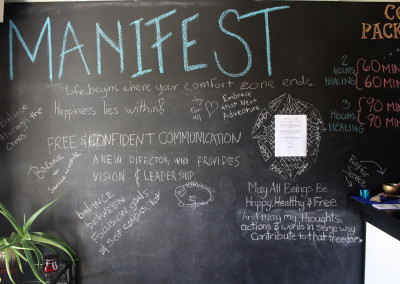 MANIFEST
CO
PACK
Life begins where your comfort zone ends.
Happiness lies within!
Embrace
that Next
Adventure
2
HOURS
HEALING
60 MIN
60 MIN
3
HOURS
HEALING
90 MIN
90 MIN
Balance
through the
FREE & CONFIDENT COMMUNICATION
A NEW DIRECTOR WHO PROVIDES
VISION & LEADERSHIP
Balance
balance
BETWEEN
Focus on goals
& self compassion
May All Beings Be
Happy, Healthy & Free
And may my thoughts,
actions & words in some way
Contribute to that freedom